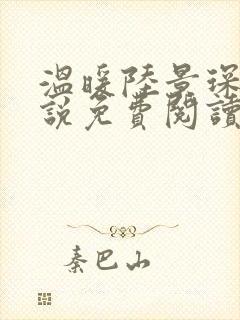 溫暖陸景琛
說免費閱讀
秦巴山